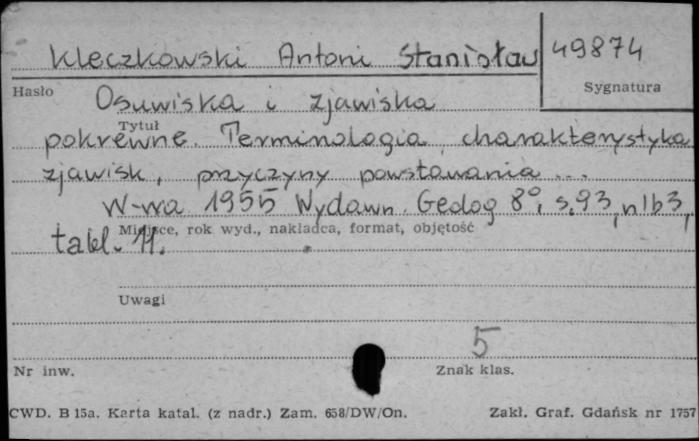 Kleczkowski Antoni Stanisław
49874
Hasło
Sygnatura
Osuwiska i zjawiska
Tytuł
pokrewne. Terminologia, charakterystyka
zjawisk, przyczyny powstawania ...
W-wa 1955 Wydawn. Geolog 8°, s. 93, nlb 3,
Miejsce, rok wyd., nakładca, format, objętość
tabl. 11.
Uwagi
5
Nr inw.
Znak klas.
CWD. B 15a. Karta katal. (z nadr.) Zam. 658/DW/On.
Zakł. Graf. Gdańsk nr 1757